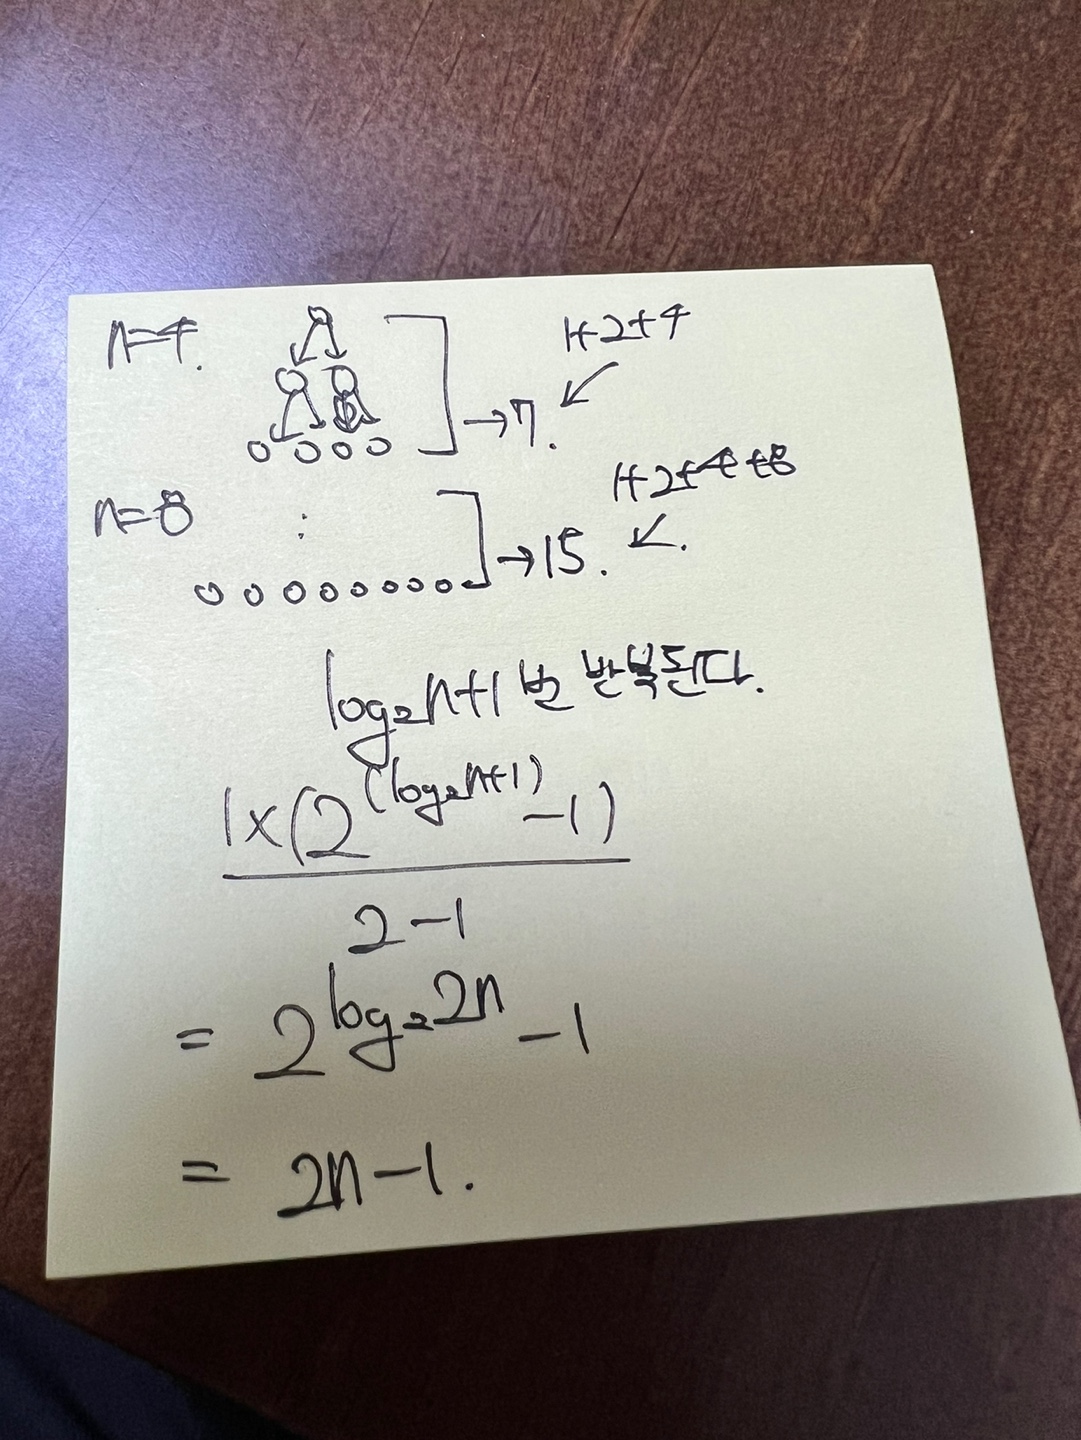 n=4.
1+2+4
→7.
n=8
:
1+2+4+8
→15.
log₂n+1 번 반복된다.
1×(2^(log₂n+1) -1)
2-1
= 2^log₂2n -1
= 2n-1.